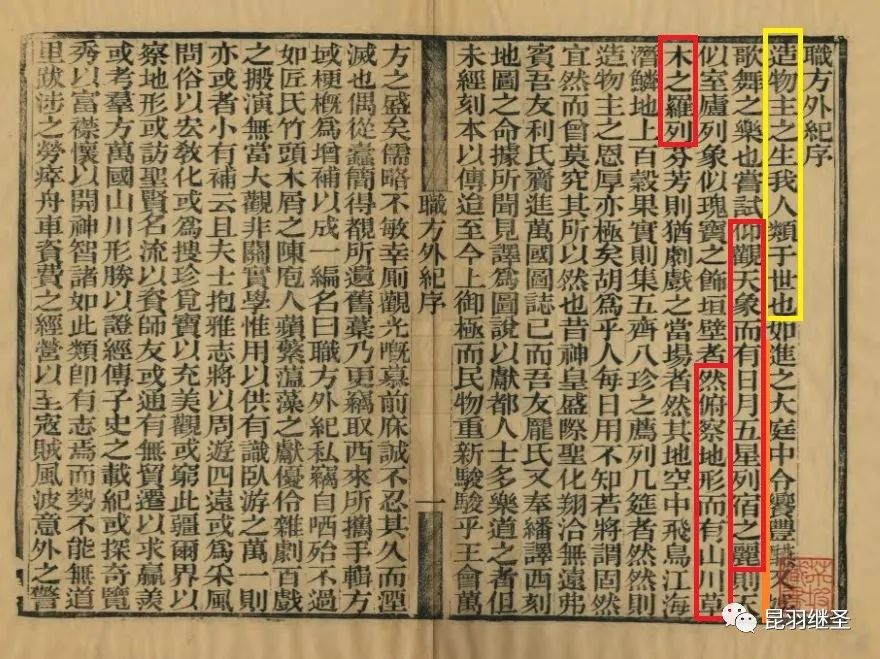 職方外紀序
造物主之生我人類于世也如進之大庭中令饗豐又
歌舞之樂也嘗試仰觀天象而有日月五星列宿之麗則天
似室廬列象似瑰寶之飾垣壁者然俯察地形而有山川草
木之羅列芬芳則猶劇戲之當場者然其地空中飛鳥江海
潛鱗地上百穀果實則集五齊八珍之薦列几筵者然然則
造物主之恩厚亦極矣胡爲乎人每日用不知若將謂固然
宜然而曾莫究其所以然也昔神皇盛際聖化翔洽無遠弗
賓吾友利氏齎進萬國圖誌已而吾友龐氏又奉繙譯西刻
地圖之命據所聞見譯爲圖說以獻都人士多樂道之者但
未經刻本以傳迨至今上御極而民物重新駸駸乎王會萬
職方外紀序
一
方之盛矣儒略不敏幸廁觀光慨慕前庥誠不忍其久而湮
滅也偶從蠹簡得覩所遺舊藁乃更竊取西來所攜手輯方
域梗概爲增補以成一編名曰職方外紀私竊自哂殆不過
如匠氏竹頭木屑之陳庖人蘋蘩薀藻之獻優伶雜劇百戲
之搬演無當大觀非關實學惟用以供有識臥游之萬一則
亦或者小有補云且夫士抱雅志將以周遊四遠或爲采風
問俗以宏教化或爲搜珍覓寶以充美觀或窮此疆爾界以
察地形或訪聖賢名流以資師友或通有無貿遷以求贏羨
或考羣方萬國山川形勝以證經傳子史之載紀或探奇覽
秀以富襟懷以開神智諸如此類卽有志焉而勢不能無道
里跋涉之勞瘁舟車資費之經營以至寇賊風波意外之警
昆羽继圣